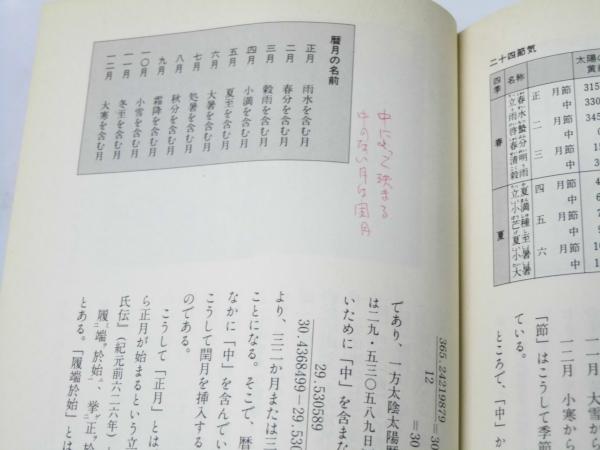 二十四節気
四季
名称
太陽の
黄経
春
立春
雨水
啓蟄
春分
清明
穀雨
正月
二月
三月
節
中
315
330
345
夏
立夏
小満
芒種
夏至
小暑
大暑
四月
五月
六月
節
中
一一月 大雪から
一二月 小寒から
「節」はこうして季節
ている。
ところで、「中」か
暦月の名前
正月 雨水を含む月
二月 春分を含む月
三月 穀雨を含む月
四月 小満を含む月
五月 夏至を含む月
六月 大暑を含む月
七月 処暑を含む月
八月 秋分を含む月
九月 霜降を含む月
一〇月 小雪を含む月
一一月 冬至を含む月
一二月 大寒を含む月
中によって決まる
中のない月は閏月
365.24219879
12
=30
であり、一方太陰太陽暦
は二九・五三〇五八九日
いために「中」を含まな
30.4368499−29.530
29.530589
より、三二か月または三
ことになる。そこで、暦
なかに「中」を含んでい
こうして閏月を挿入する
のである。
こうして「正月」とは
ら正月が始まるという立
氏伝』(紀元前六二六年)
履端於始、挙正於
とある。「履端於始」とは